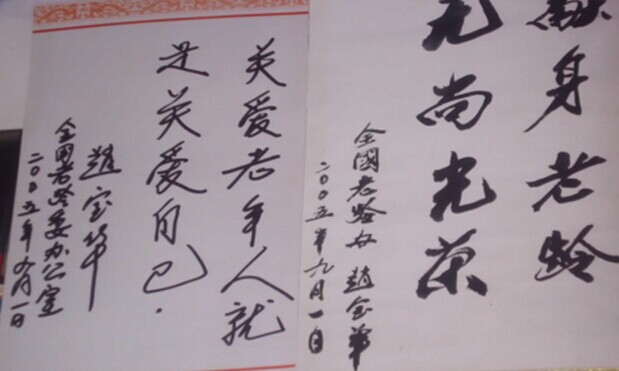 关爱老年人就
是关爱自己.
趙宝华
全国老龄委办公室
二〇〇五年九月一日
献身老龄
无尚光荣
全國老龄办 趙宝華
二〇〇五年九月一日